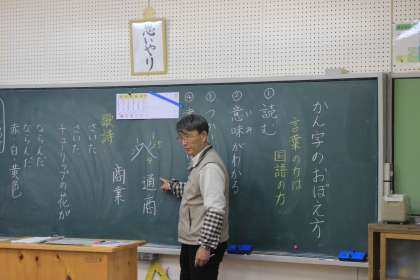 思いやり
かん字のおぼえ方
言葉の力は
国語の力
① 読む
② 意味がわかる
③
④
通商
商業
歌詩
さいた
さいた
チューリップの花が
ならんだ
ならんだ
赤 白 黄色